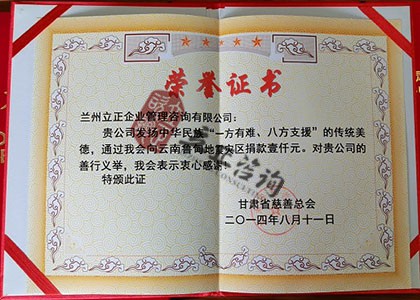 荣誉证书
兰州立正企业管理咨询有限公司：
贵公司发扬中华民族“一方有难、八方支援”的传统美
德，通过我会向云南鲁甸地震灾区捐款壹仟元。对贵公司的
善行义举，我会表示衷心感谢！
特颁此证
甘肃省慈善总会
二〇一四年八月十一日
立正咨询